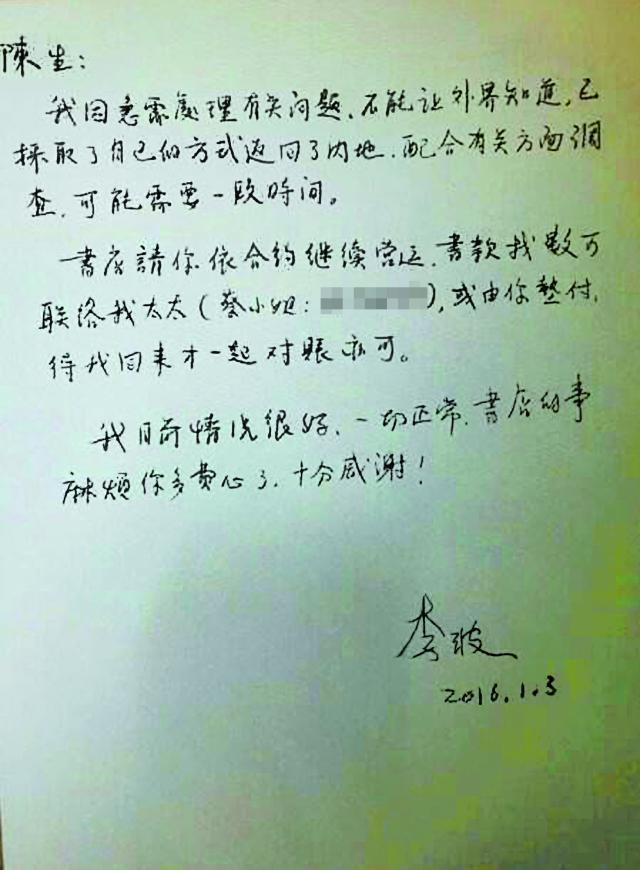 陳生：
我因急需處理有关问题、不能让外界知道，已
採取了自己的方式返回了内地、配合有关方面調
查、可能需要一段時间。
書店請你依合约继续营运、書款找數可
联络我太太（蔡小姐：），或由你墊付、
待我回来才一起对賬亦可。
我目前情况很好、一切正常、書店的事
麻烦你多费心了、十分感谢！
李波
2016.1.3